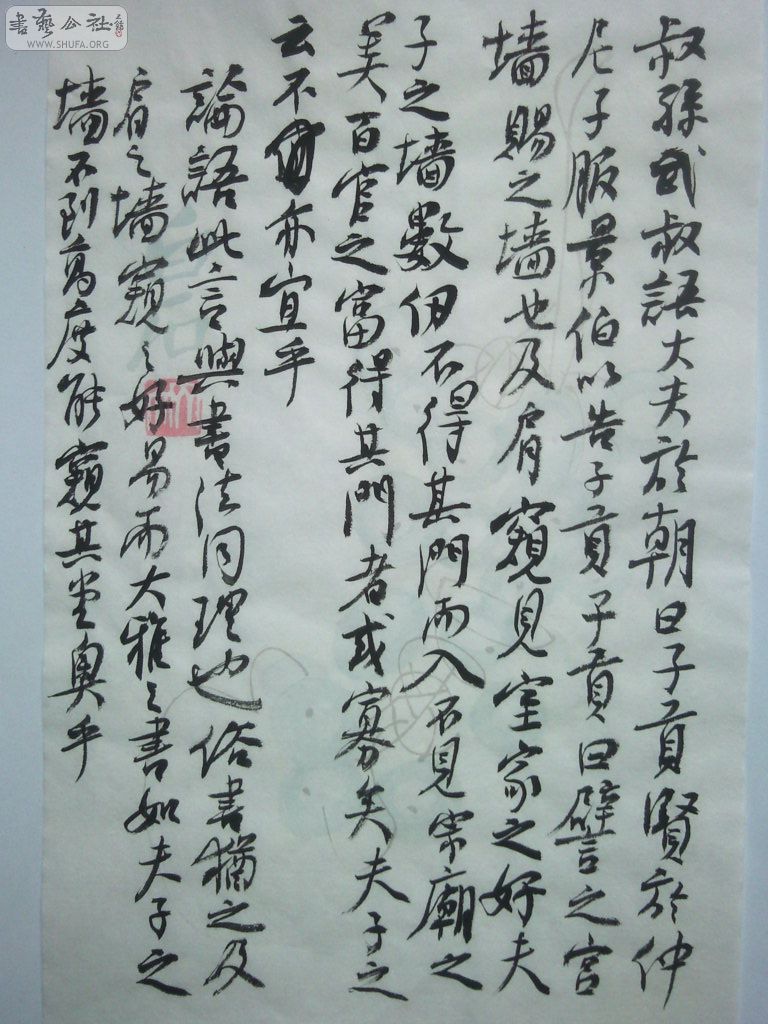 叔孫武叔語大夫於朝曰子貢賢於仲
尼子服景伯以告子貢子貢曰譬之宫
墙賜之墙也及肩窺見室家之好夫
子之墙數仞不得其門而入不見宗廟之
美百官之富得其門者或寡矣夫子之
云不亦宜乎
論語此言與書法同理也俗書猶之及
肩之墙窺之好易而大雅之書如夫子之
墙不到高度能窺其堂奥乎
書藝公社
WWW.SHUFA.ORG